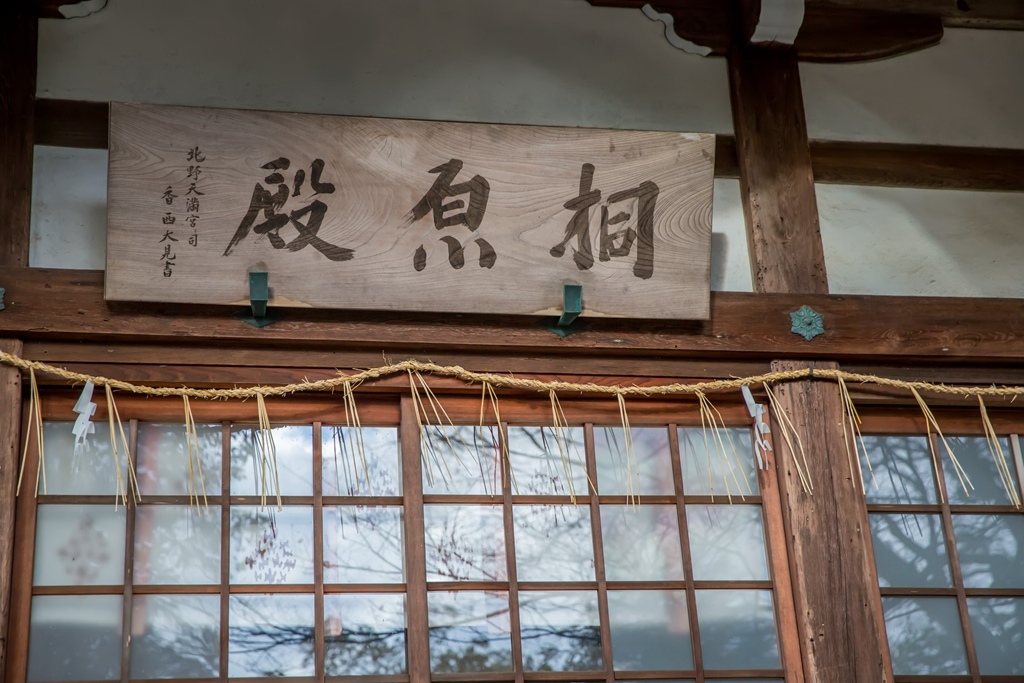 桐原殿
北野天満宮司
香西大見書